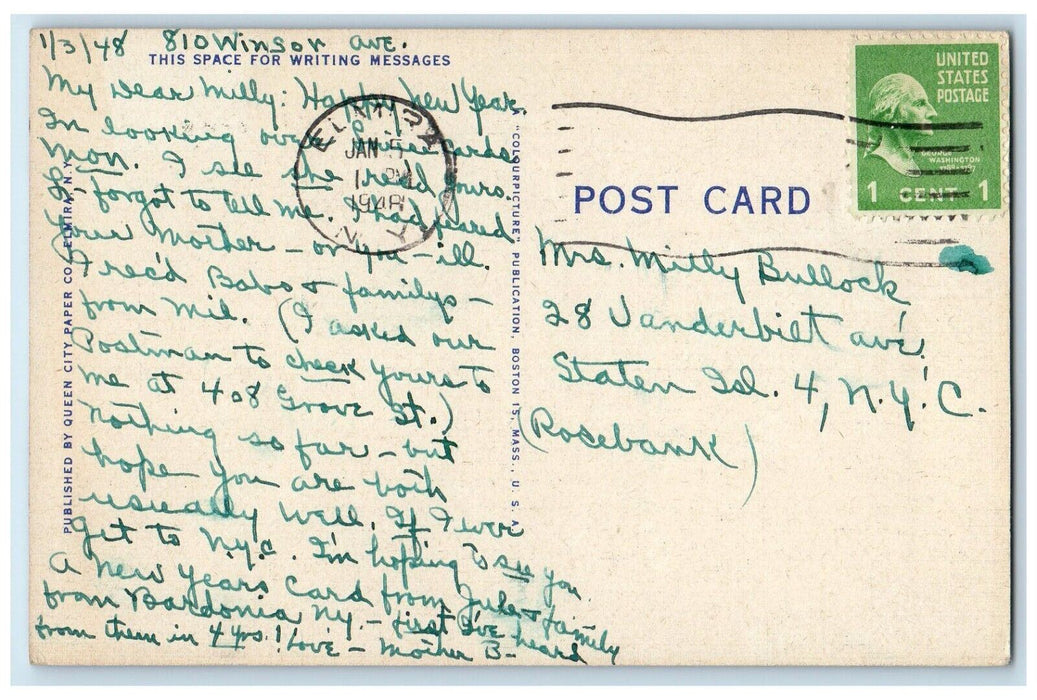 1/3/48 810 Winsor ave.
THIS SPACE FOR WRITING MESSAGES
My Dear Milly: Happy New Year.
In looking over cards
Mon. I see she rec'd yours
& forgot to tell me. I had feared
your Mother - or you - ill.
I rec'd Babs & familys -
from Mil. (I asked our
Postman to check yours to
me at 408 Grove St.)
Nothing so far - but
hope you are both
usually well. If I ever
get to N.Y.C. I'm hoping to see you.
A New Years Card from Jule & family
from Bardonia NY. - first I've heard
from them in 4 yrs.! Love - Mother B-
PUBLISHED BY QUEEN CITY PAPER CO. ELMIRA, N.Y.
A "COLOURPICTURE" PUBLICATION, BOSTON 15, MASS., U.S.A.
ELMIRA
JAN 5
1 PM
1948
N.Y.
UNITED
STATES
POSTAGE
GEORGE
WASHINGTON
1789-1797
1 CENT 1
POST CARD
Mrs. Milly Bullock
28 Vanderbilt ave.
Staten Isl. 4, N.Y.C.
(Rosebank)